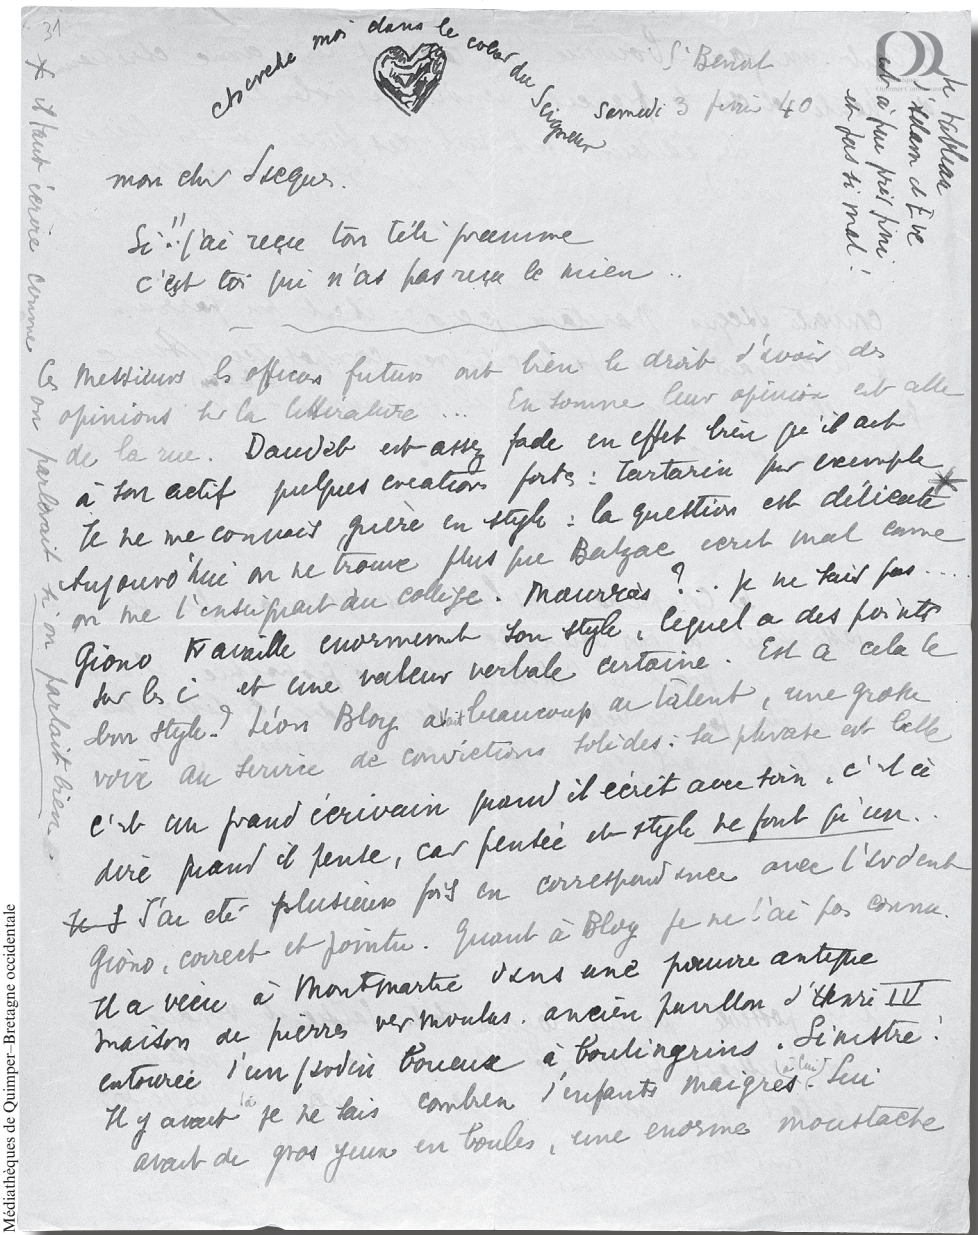 31
cherche moi dans le cœur du Seigneur
St Benoit
samedi 3 février 40
le tableau
Adam et Ève
est à peu près fini
et pas si mal !
mon cher
Si !! j'ai reçu ton télégramme
c'est toi qui n'as pas reçu le mien ..
Ces Messieurs les officiers futurs ont bien le droit d'avoir des
opinions sur la littérature ... En somme leur opinion est celle
de la rue. Daudet est assez fade en effet bien qu'il ait
à son actif quelques créations fortes : tartarin par exemple *
Je ne me connais guère en style : la question est délicate
Aujourd'hui on ne trouve plus que Balzac écrit mal comme
on me l'enseignait au collège. Maurras ? .. je ne sais pas ....
Giono travaille enormement son style, lequel a des points
sur les i et une valeur verbale certaine. Est a cela le
bon style ? Léon Bloy avait beaucoup de talent, une grosse
voix au service de convictions solides : sa phrase est belle
c'est un grand écrivain quand il écrit avec soin, c'est à
dire quand il pense, car pensée et style ne font qu'un ..
J'ai été plusieurs fois en correspondance avec l'
Giono, correct et pointu. Quant à Bloy je ne l'ai pas connu.
Il a vécu à Montmartre dans une pauvre antique
maison de pierres vermoulues. ancien pavillon d'Henri IV
entourée d'un jardin boueux à boulingrins. Sinistre !
Il y avait là je ne sais combien d'enfants maigres (à lui). Lui
avait de gros yeux en boules, une enorme moustache
* il faut écrire comme on parlerait si on parlait bien.
Médiathèques de Quimper–Bretagne occidentale